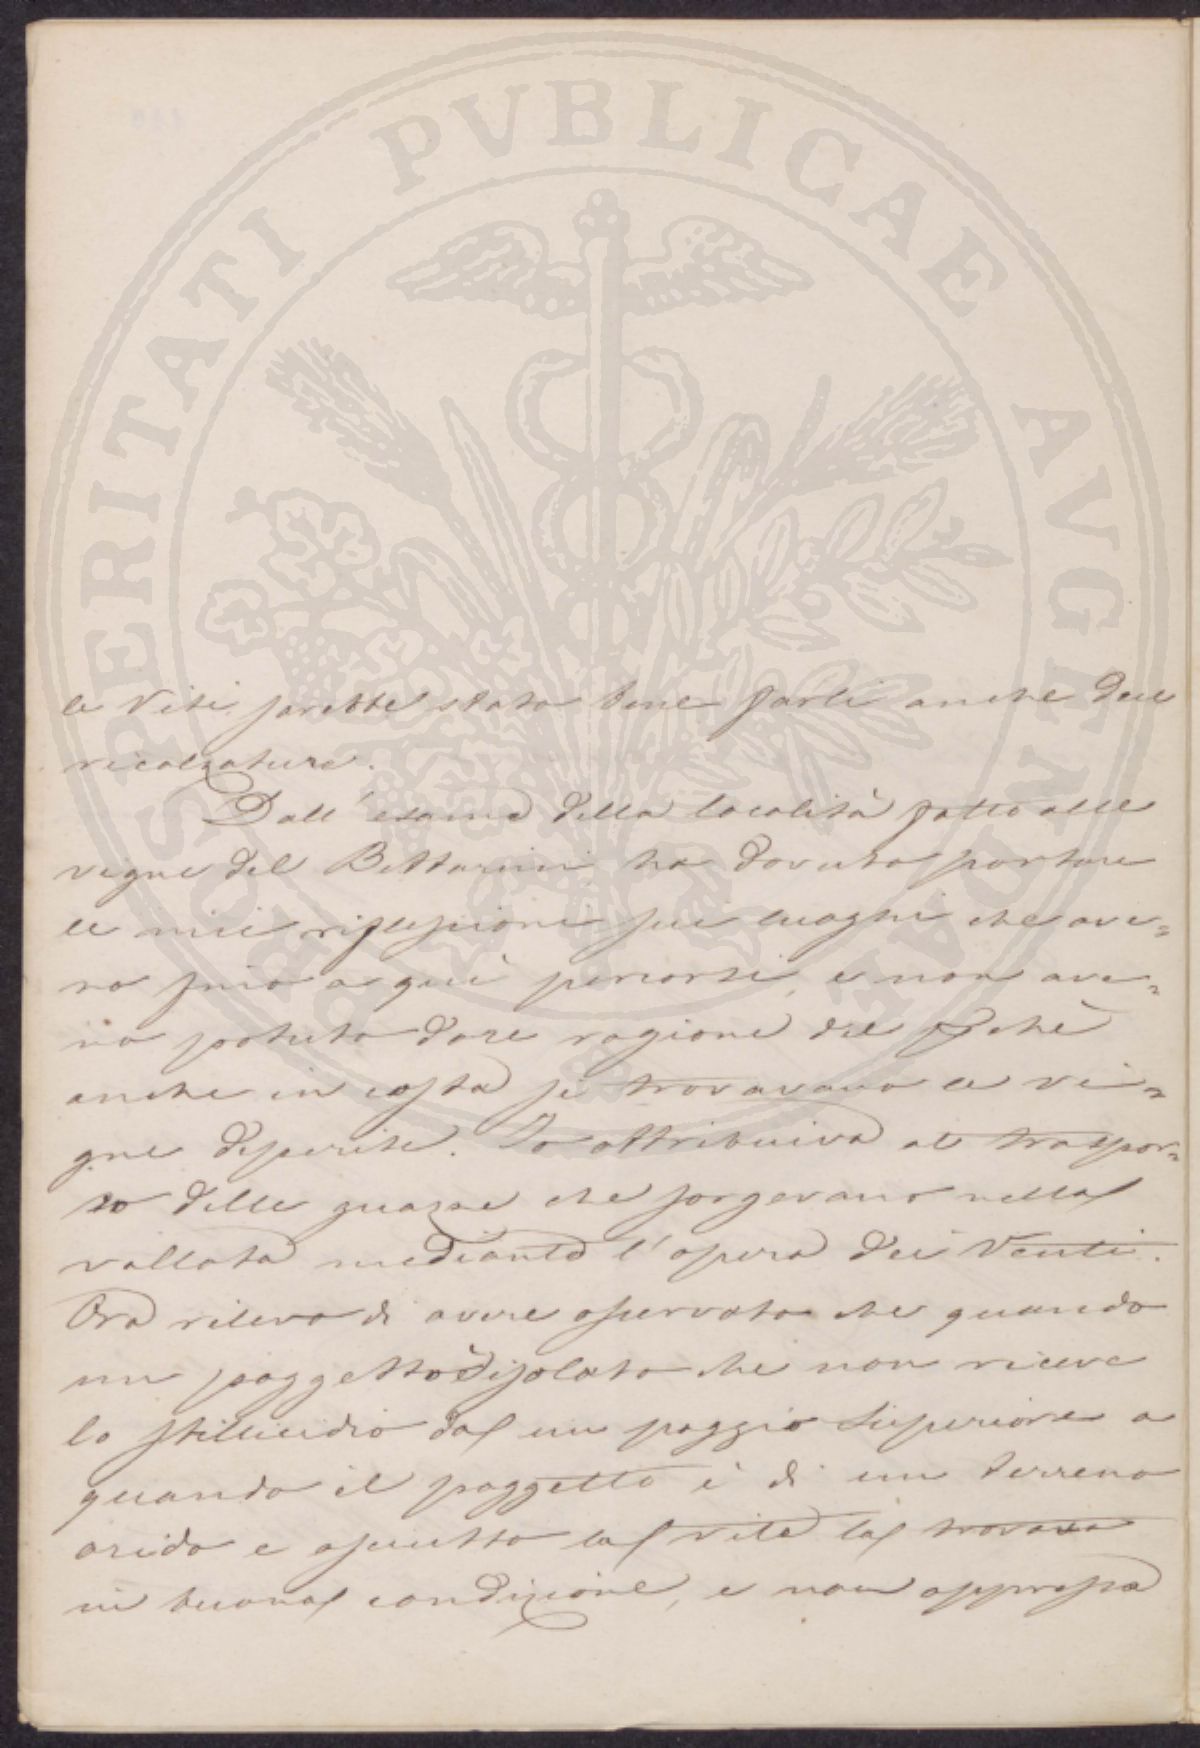 PROSPERITATI PVBLICAE AVGENDAE
le Viti sarebbe stato bene farli anche delle
ricalzature.
Dall'esame della località fatto alle
vigne del Bettarini, ho dovuto portare
le mie riflessioni sui luoghi che ave=
vo fino a qui percorsi, e non ave=
vo potuto dare ragione del pchè
anche in costa si trovavano le vi=
gne deperite. Io attribuiva al traspor=
to delle guazze che sorgevano nella
vallata mediante l'opera dei Venti.
Ora rilevo di avere osservato che quando
un poggetto è isolato che non riceve
lo stillicidio da un poggio superiore o
quando il poggetto è di un terreno
arido e asciutto la vite la trovava
in buona condizione, e non oppressa